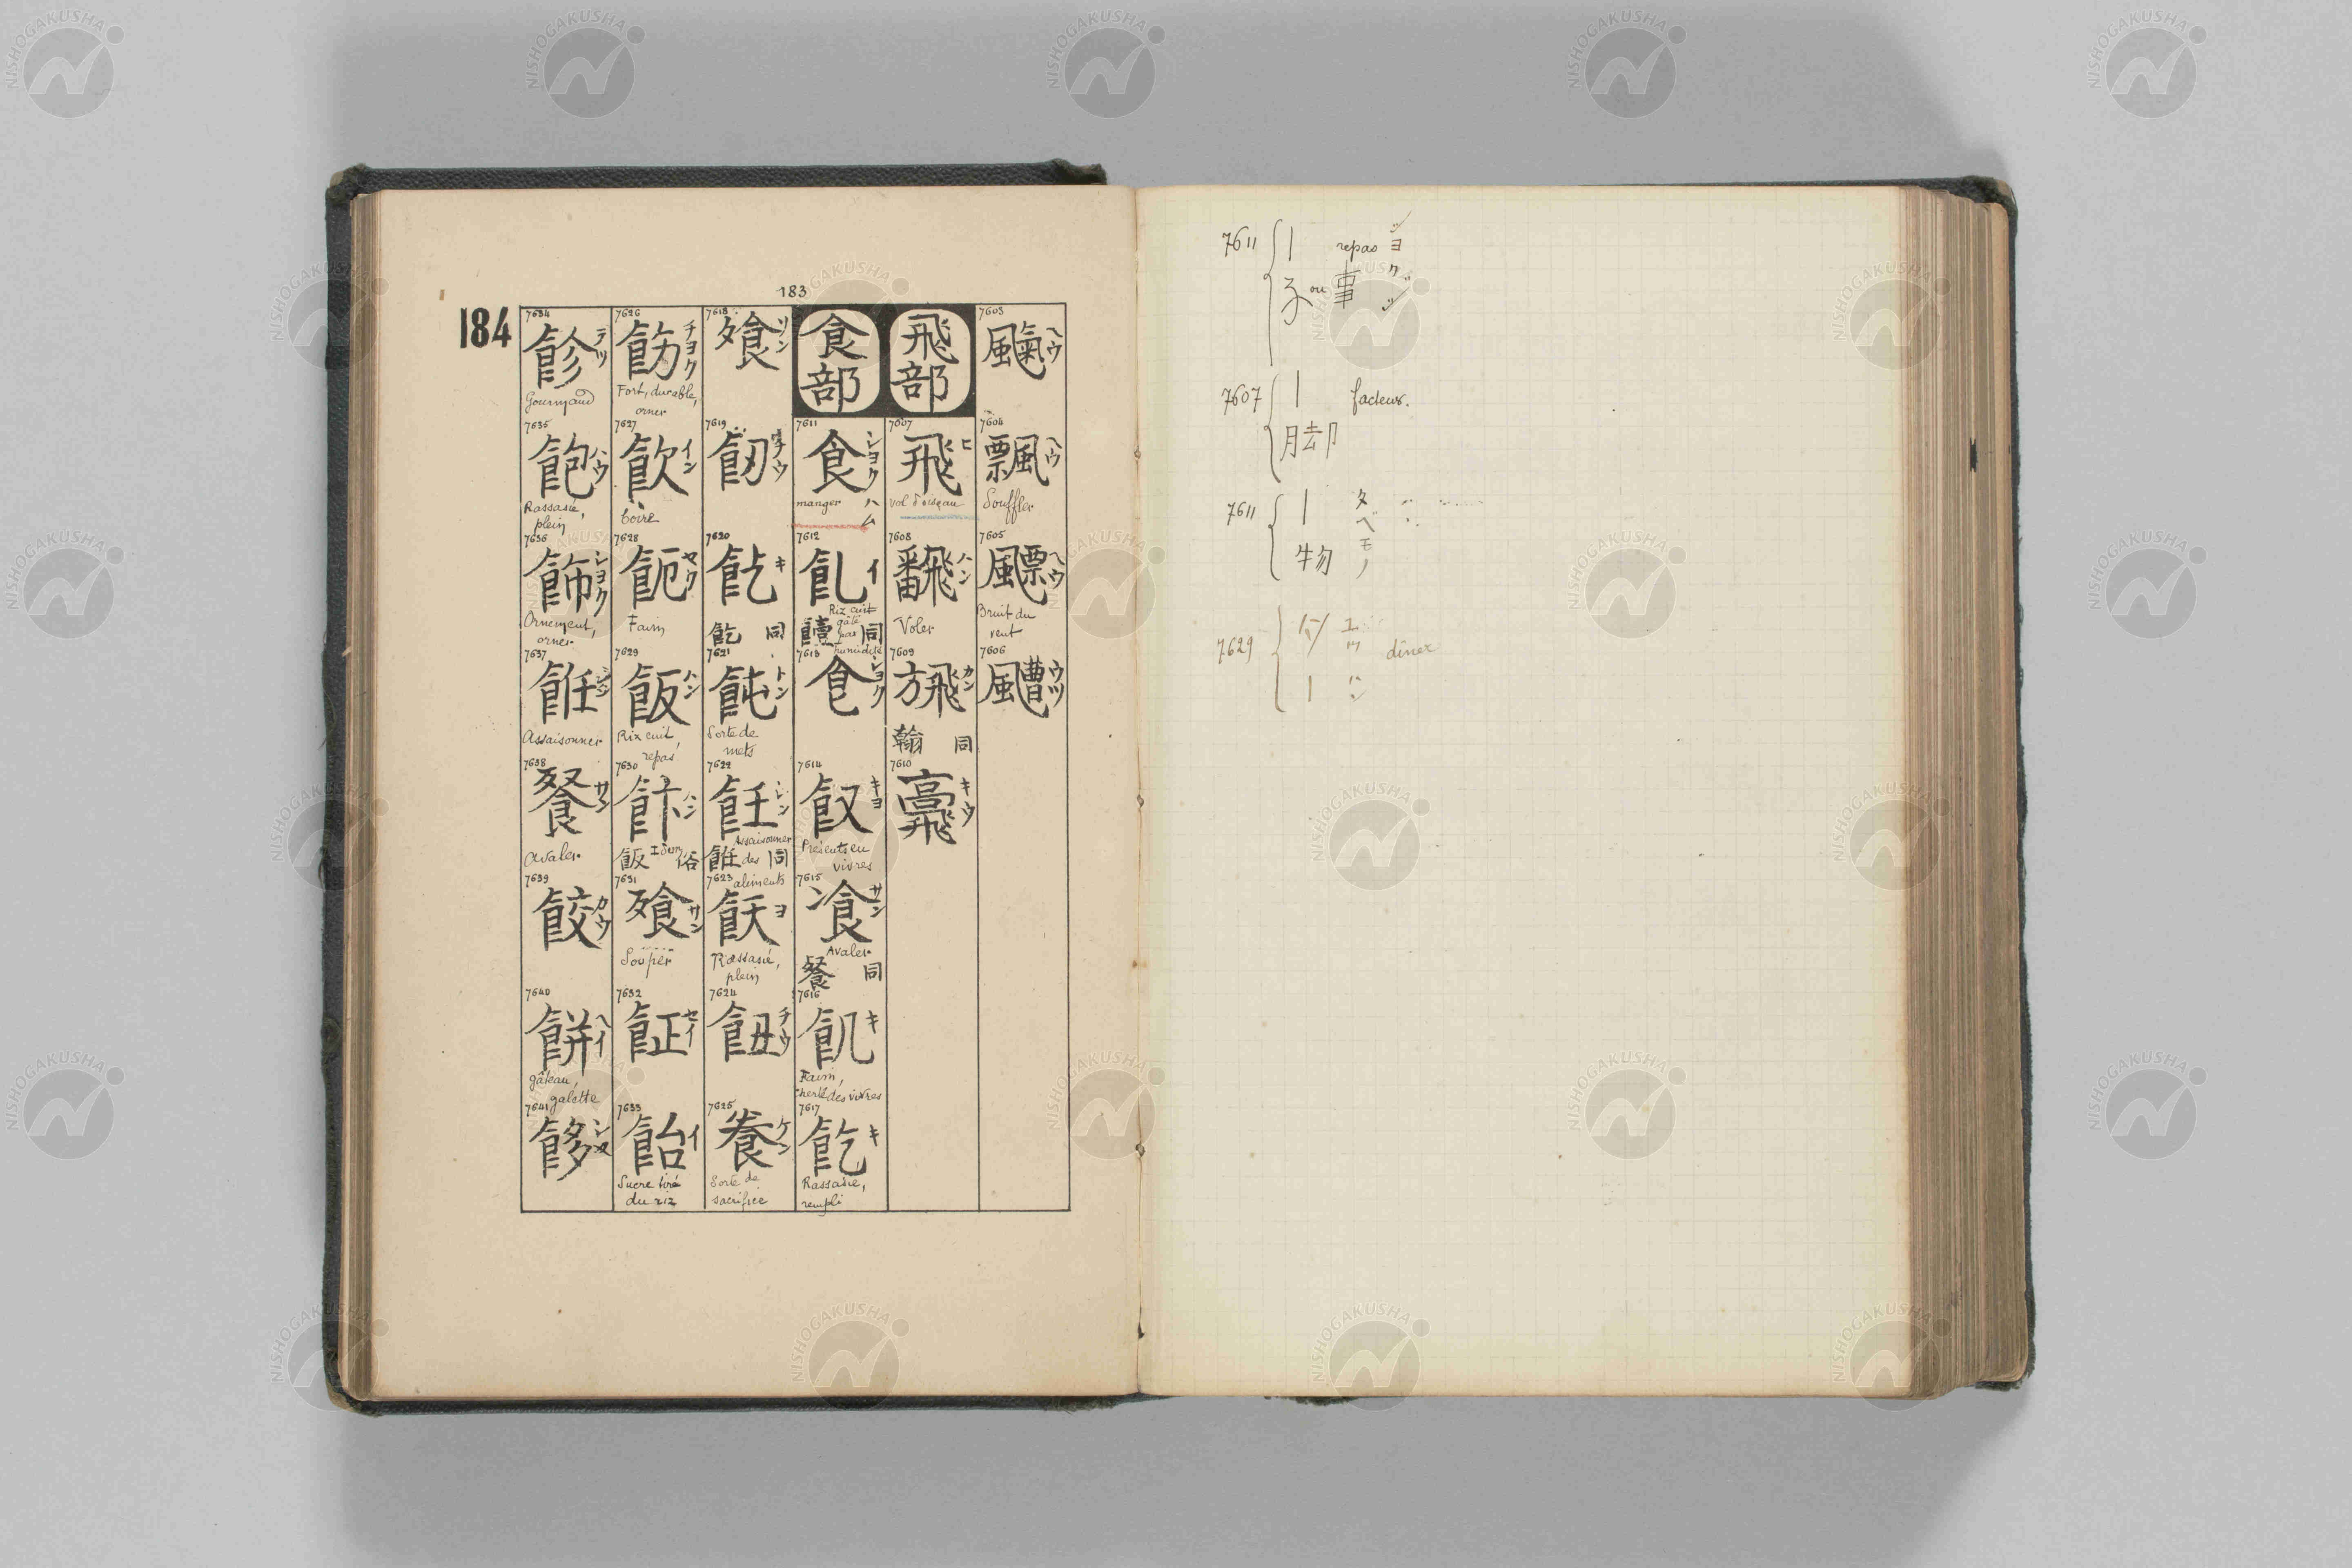 183
184
7603
ヘウ
7604
飄
ヘウ
Souffler
7605
飃
ヘウ
Bruit du
vent
7606
ウツ
飛部
7607
飛
ヒ
vol d'oiseau
7608
飜
ハン
Voler
7609
カン
翰 同
7610
キウ
食部
7611
食
シヨク
ハム
manger
7612
飢
イ
Riz cuit
gâté
par
humidité
同
7613
シヨク
7614
キヨ
Présents en
vivres
7615
飡
サン
Avaler
餐 同
7616
飢
キ
Faim,
cherté des vivres
7617
飹
キ
Rassasié,
rempli
7618
飧
ソン
7619
7620
キ
飢 同
7621
飩
トン
Sorte de
mets
7622
飪
ジン
Assaisonner
des
aliments
餁 同
7623
飫
ヨ
Rassasié,
plein
7624
飿
チウ
7625
ケン
Sorte de
sacrifice
7626
チヨク
Fort, durable,
orner
7627
飲
イン
boire
7628
ヤク
Faim
7629
飯
ハン
Riz cuit,
repas
7630
飰
ハン
飯 Idem 俗
7631
サン
Souper
7632
セイ
7633
飴
イ
Sucre tiré
du riz
7634
テツ
Gourmand
7635
飽
ハウ
Rassasié,
plein
7636
飾
シヨク
Ornement,
orner
7637
餁
ジン
Assaisonner
7638
餐
サン
Avaler
7639
餃
カウ
7640
餅
ヘイ
gâteau,
galette
7641
7611
repas
シヨク
ou 事
ジ
7607
facteur.
脚
7611
タベモノ
物
7629
dîner
ハン
NISHOGAKUSHA